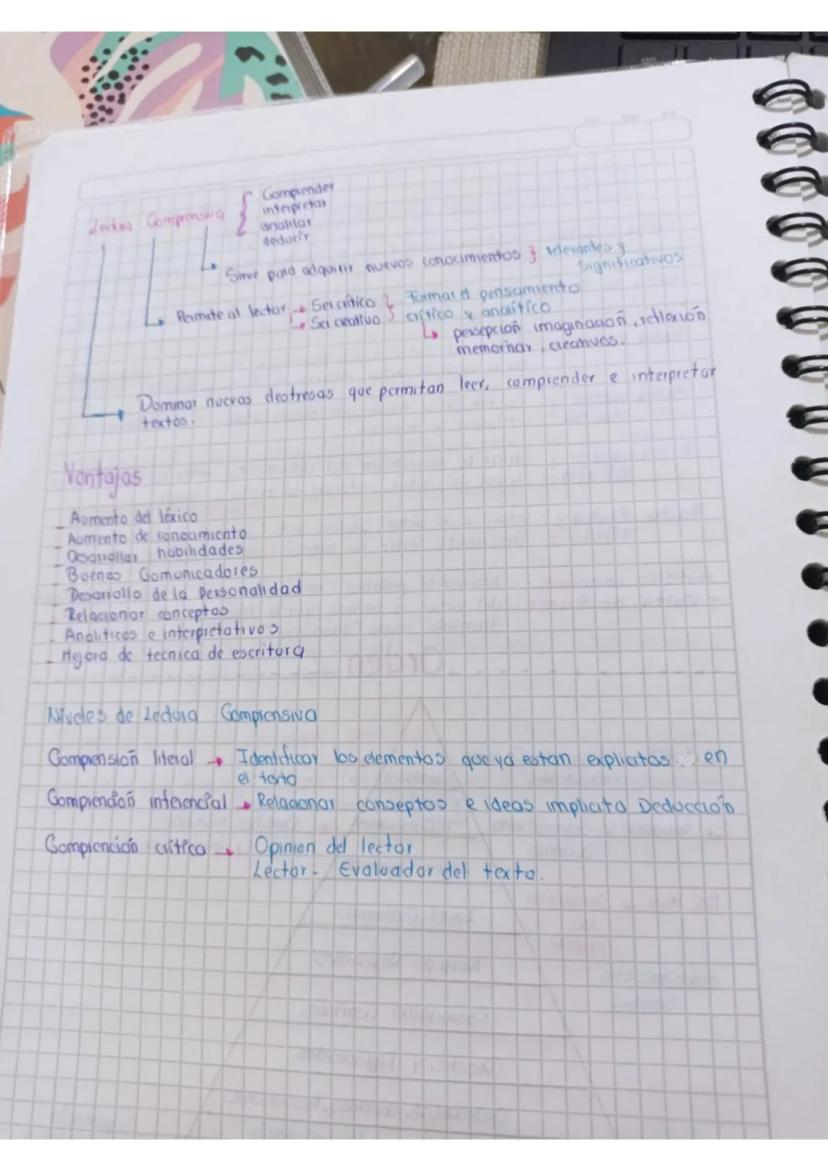 Lectura Comprensiva { Comprender
interpretar
analilar
deducir
Sirve para adquirir nuevos conocimientos } relevantes y
significativos
Permite al lector → Ser crítico } Formar el pensamiento
→ Ser creativo } crítico y analítico
↳ percepción imaginación, reflexión
memorihar, creativos.
Dominar nuevas deotresas que permitan leer, comprender e interpretar
textos.
Ventajas
_ Aumento del léxico
_ Aumento de conocimiento
_ Desarrollar habilidades
_ Buenos Comunicadores
_ Desarrollo de la Personalidad
_ Relacionar conceptos
_ Analíticos e interpretativos
_ Mejora de tecnica de escritura
Niveles de Lectura Comprensiva
Comprensión literal → Identificar los elementos que ya estan explicitos.. en
el texto
Comprención inferencial → Relacionar conseptos e ideas implicito Deducción
Comprención crítica → Opinion del lector
Lector- Evaluador del texto.